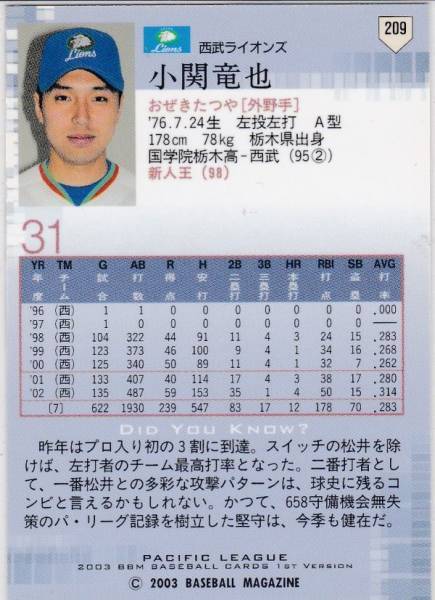 209
Lions
西武ライオンズ
小関竜也
おぜきたつや[外野手]
'76.7.24生 左投左打 A型
178cm 78kg 栃木県出身
国学院栃木高-西武(95②)
新人王(98)
31
YR TM G AB R H 2B 3B HR RBI SB AVG
年度 チーム 試合 打数 得点 安打 二塁打 三塁打 本塁打 打点 盗塁 打率
'96 (西) 1 1 0 0 0 0 0 0 0 .000
'97 (西) 1 0 0 0 0 0 0 0 0 ―
'98 (西) 104 322 44 91 11 4 3 24 15 .283
'99 (西) 123 373 46 100 9 4 4 34 16 .268
'00 (西) 125 340 50 89 11 4 3 32 7 .262
'01 (西) 133 407 40 114 17 4 3 38 17 .280
'02 (西) 135 487 59 153 35 2 4 50 15 .314
[7] 622 1930 239 547 83 12 17 178 70 .283
DID YOU KNOW?
昨年はプロ入り初の3割に到達。スイッチの松井を除
けば、左打者のチーム最高打率となった。二番打者とし
て、一番松井との多彩な攻撃パターンは、球史に残るコ
ンビと言えるかもしれない。かつて、658守備機会無失
策のパ・リーグ記録を樹立した堅守は、今季も健在だ。
PACIFIC LEAGUE
2003 BBM BASEBALL CARDS 1ST VERSION
© 2003 BASEBALL MAGAZINE